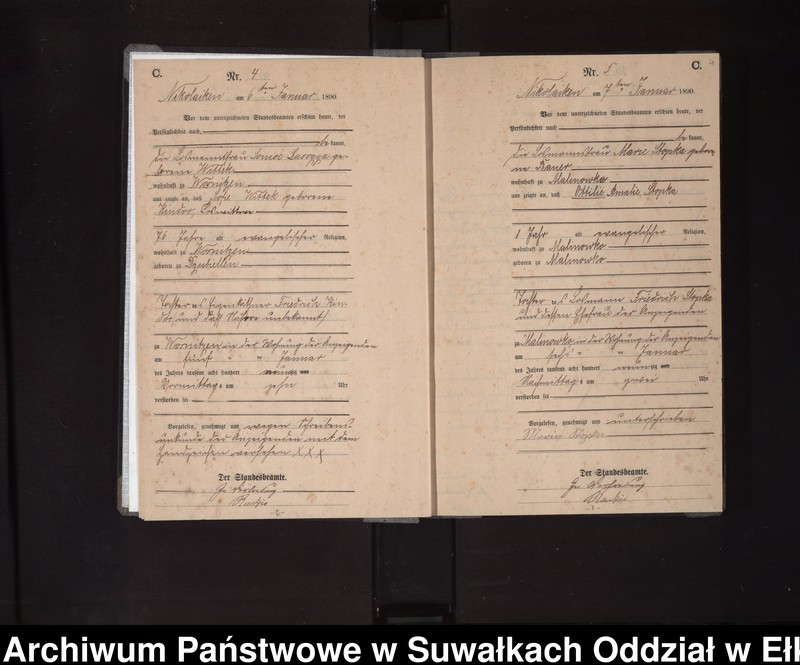 C.
Nr. 4
Nikolaiken am 6ten Januar 1890
Vor dem unterzeichneten Standesbeamten erschien heute, der
Persönlichkeit nach
bekannt,
die Losmannsfrau Louise ge-
borene Wittek
wohnhaft zu Woznitzen
und zeigte an, daß Wittek geborene
Losmittwe
76 Jahre alt evangelischer Religion,
wohnhaft zu Woznitzen
geboren zu
Tochter des Eigenkäthner Friedrich Kin-
dor, und
zu Woznitzen in der Wohnung der Anzeigenden
am fünf " " Januar
des Jahres tausend acht hundert neunzig und
Vormittags um zehn Uhr
verstorben sei
Vorgelesen, genehmigt und wegen Schreibens-
unkunde der Anzeigenden mit dem
Handzeichen versehen XXX
Der Standesbeamte.
In Vertretung
C.
Nr. 5
Nikolaiken am 7ten Januar 1890.
Vor dem unterzeichneten Standesbeamten erschien heute, der
Persönlichkeit nach
bekannt,
die Losmannsfrau Marie Stopka gebore-
ne
wohnhaft zu Malinowko
und zeigte an, daß Ottilie Amalie Stopka
1 Jahr alt evangelischer Religion,
wohnhaft zu Malinowko
geboren zu Malinowko
Tochter des Losmann Friedrich Stopka
und dessen Ehefrau der Anzeigenden
zu Malinowko in der Wohnung der Anzeigenden
am sechs " " Januar
des Jahres tausend acht hundert neunzig und
Nachmittags um zwei Uhr
verstorben sei
Vorgelesen, genehmigt und unterschrieben
Marie Stopka
Der Standesbeamte.
In Vertretung
Archiwum Państwowe w Suwałkach Oddział w Ełk